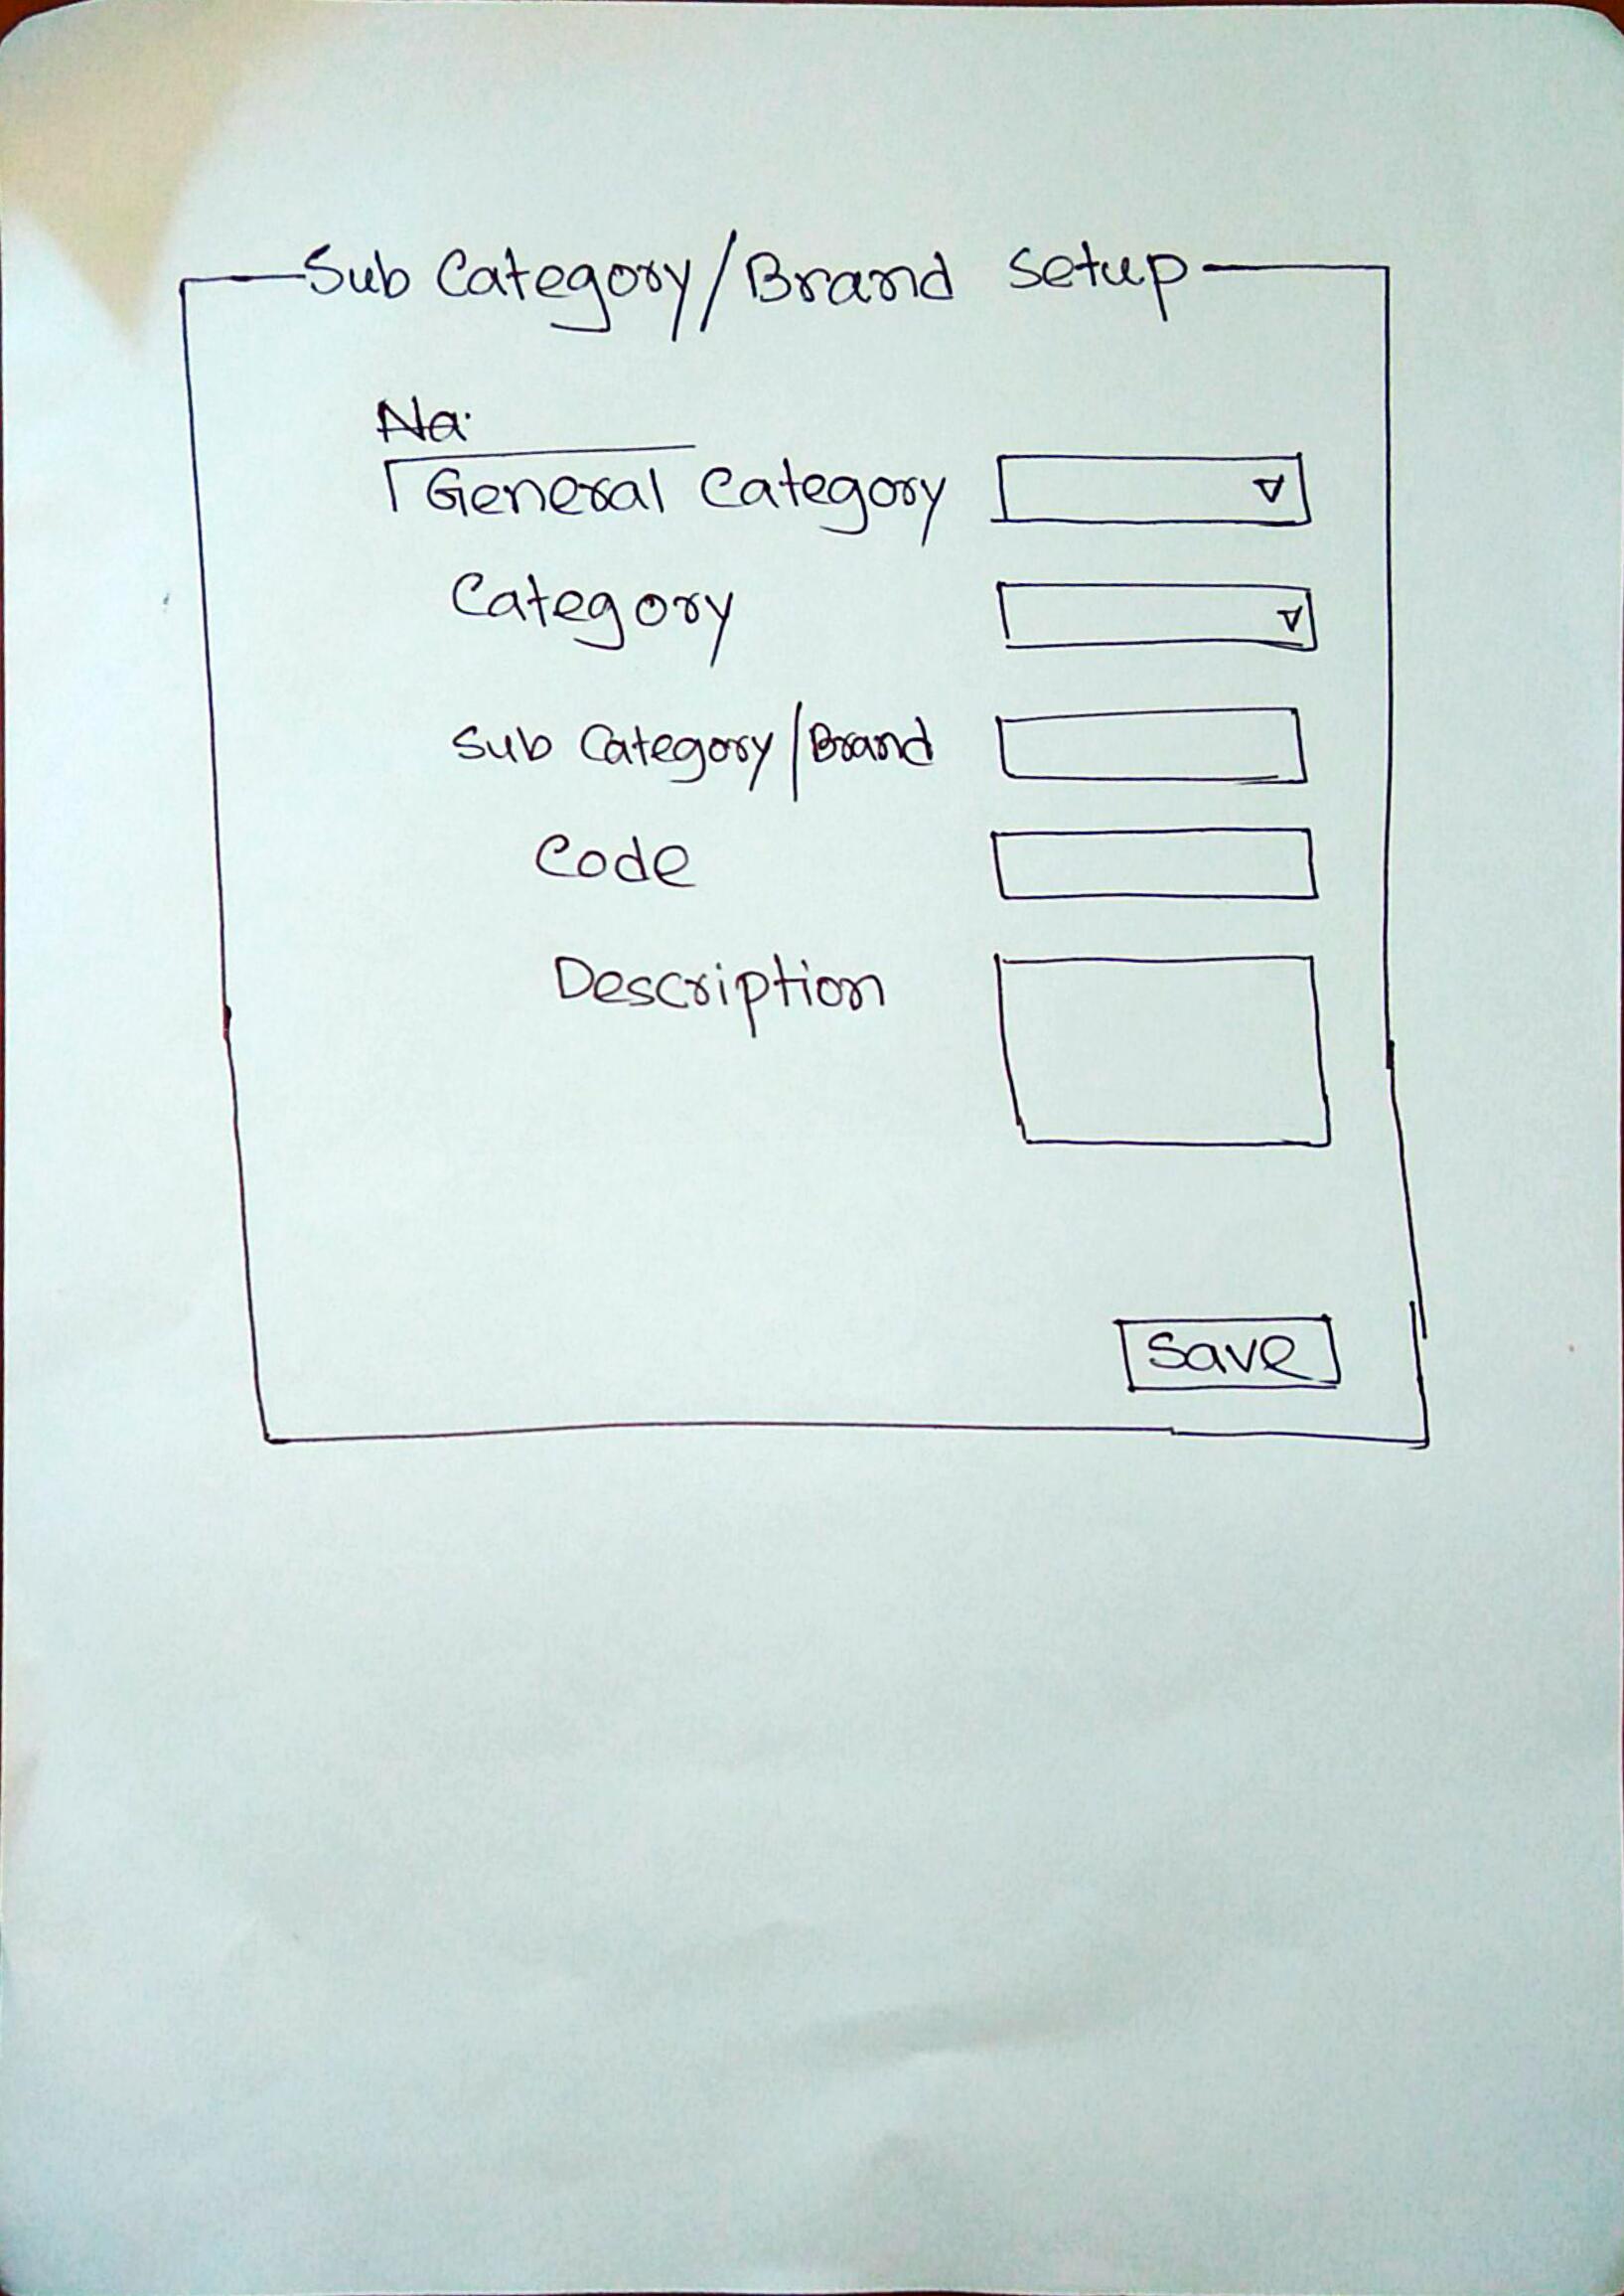 Sub Category/Brand Setup
Na.
General Category
Category
Sub Category/Brand
Code
Description
Save